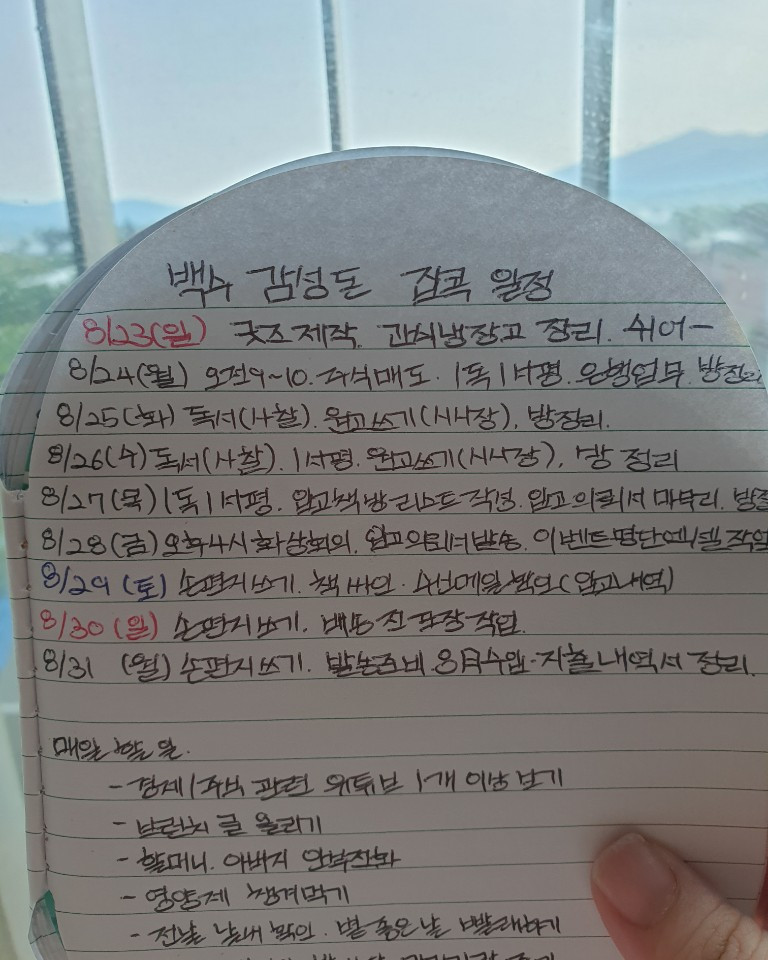 백수 김성돈 집콕 일정
8/23(일) 굿즈제작. 간식냉장고 정리. 쉬어-
8/24(월) 오전9~10. 주식매도. 1독 1서평. 은행업무. 방정리
8/25(화) 독서(사찰). 원고쓰기(시사장). 방정리.
8/26(수) 독서(사찰). 1서평. 원고쓰기(시사장). 방 정리
8/27(목) 1독 1서평. 입고책방리스트작성. 입고의뢰서 마무리. 방정
8/28(금) 오후4시 화상회의. 입고의뢰서발송. 이벤트명단엑셀작업
8/29 (토) 손편지쓰기. 책 싸인. 수신메일확인(입고내역)
8/30 (일) 손편지쓰기. 배송 전 포장작업.
8/31 (월) 손편지쓰기. 발송준비 8月수입·지출내역서 정리.
매일 할 일.
- 경제/주식 관련 유튜브 1개 이상 보기
- 브런치 글 올리기
- 할머니. 아버지 안부전화
- 영양제 챙겨먹기
- 전날 날씨 확인. 볕 좋은 날 빨래하기